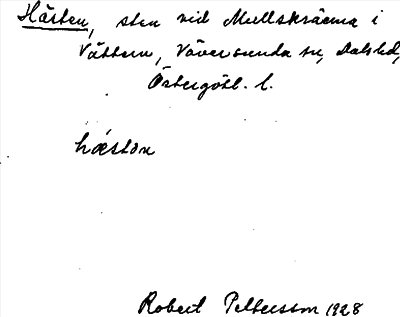 Hästen, sten vid Mullskräerna i
Vättern, Väversunda sn, Dals hd,
Östergötl. l.
hǽstən
Robert Pettersson 1928